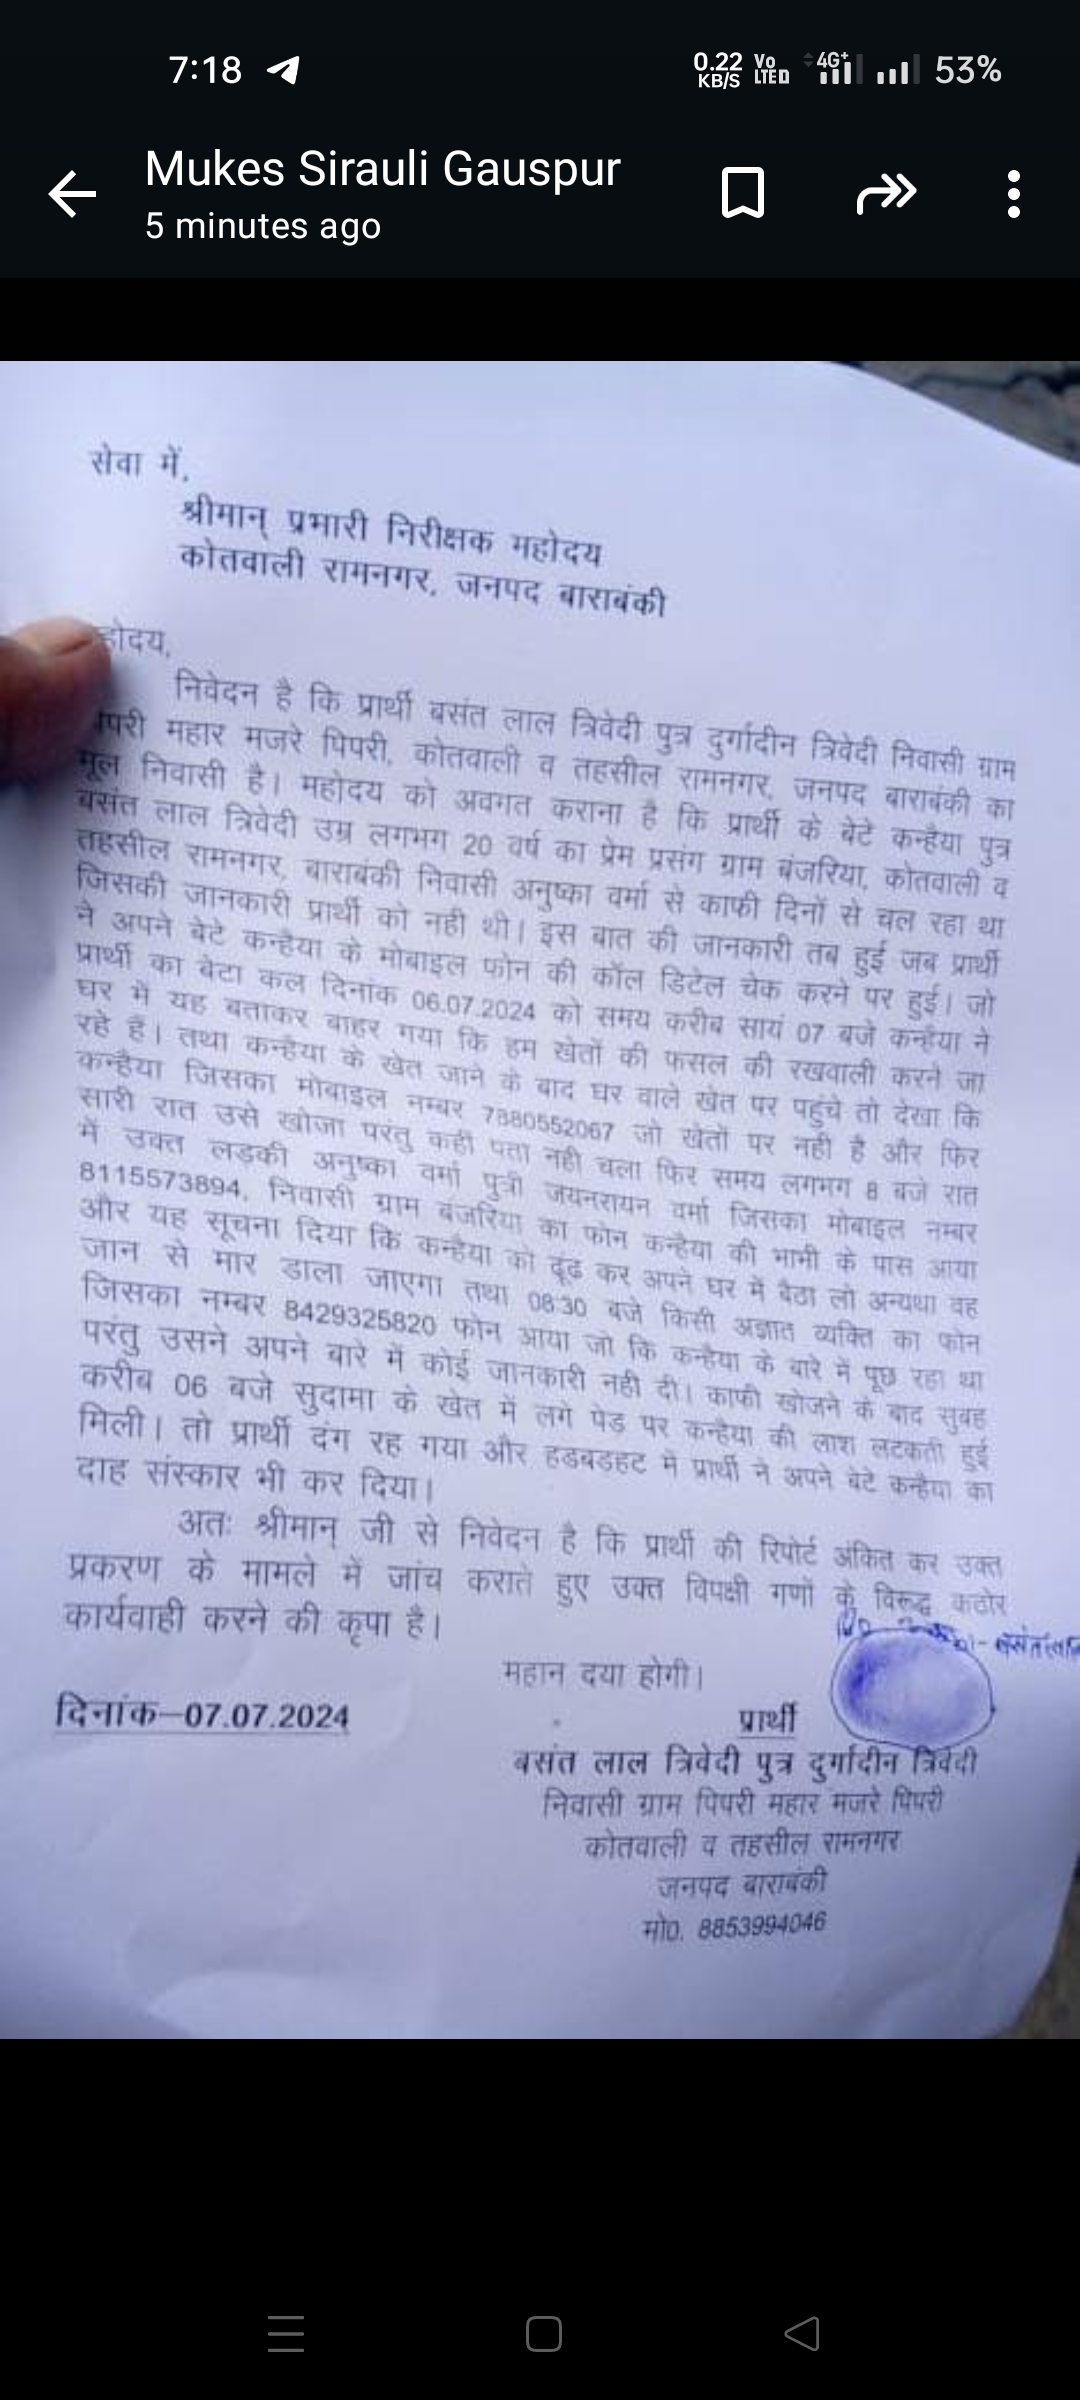 7:18
0.22 KB/S Vo LTE 4G+ 53%
Mukes Sirauli Gauspur
5 minutes ago
सेवा में,
श्रीमान् प्रभारी निरीक्षक महोदय
कोतवाली रामनगर, जनपद बाराबंकी
होदय,
निवेदन है कि प्रार्थी बसंत लाल त्रिवेदी पुत्र दुर्गादीन त्रिवेदी निवासी ग्राम
पिपरी महार मजरे पिपरी, कोतवाली व तहसील रामनगर, जनपद बाराबंकी का
मूल निवासी है। महोदय को अवगत कराना है कि प्रार्थी के बेटे कन्हैया पुत्र
बसंत लाल त्रिवेदी उम्र लगभग 20 वर्ष का प्रेम प्रसंग ग्राम बंजरिया, कोतवाली व
तहसील रामनगर, बाराबंकी निवासी अनुष्का वर्मा से काफी दिनों से चल रहा था
जिसकी जानकारी प्रार्थी को नही थी। इस बात की जानकारी तब हुई जब प्रार्थी
ने अपने बेटे कन्हैया के मोबाइल फोन की कॉल डिटेल चेक करने पर हुई। जो
प्रार्थी का बेटा कल दिनांक 06.07.2024 को समय करीब सायं 07 बजे कन्हैया ने
घर में यह बताकर बाहर गया कि हम खेतों की फसल की रखवाली करने जा
रहे हैं। तथा कन्हैया के खेत जाने के बाद घर वाले खेत पर पहुंचे तो देखा कि
कन्हैया जिसका मोबाइल नम्बर 7880552067 जो खेतों पर नही है और फिर
सारी रात उसे खोजा परंतु कही पता नही चला फिर समय लगभग 8 बजे रात
में उक्त लड़की अनुष्का वर्मा पुत्री जयनरायन वर्मा जिसका मोबाइल नम्बर
8115573894, निवासी ग्राम बंजरिया का फोन कन्हैया की भाभी के पास आया
और यह सूचना दिया कि कन्हैया को ढूंढ कर अपने घर में बैठा लो अन्यथा वह
जान से मार डाला जाएगा तथा 08:30 बजे किसी अज्ञात व्यक्ति का फोन
जिसका नम्बर 8429325820 फोन आया जो कि कन्हैया के बारे में पूछ रहा था
परंतु उसने अपने बारे में कोई जानकारी नही दी। काफी खोजने के बाद सुबह
करीब 06 बजे सुदामा के खेत में लगे पेड पर कन्हैया की लाश लटकती हुई
मिली। तो प्रार्थी दंग रह गया और हडबडहट में प्रार्थी ने अपने बेटे कन्हैया का
दाह संस्कार भी कर दिया।
अतः श्रीमान् जी से निवेदन है कि प्रार्थी की रिपोर्ट अंकित कर उक्त
प्रकरण के मामले में जांच कराते हुए उक्त विपक्षी गणों के विरूद्ध कठोर
कार्यवाही करने की कृपा है।
बसंतलाल
महान दया होगी।
दिनांक-07.07.2024
प्रार्थी
बसंत लाल त्रिवेदी पुत्र दुर्गादीन त्रिवेदी
निवासी ग्राम पिपरी महार मजरे पिपरी
कोतवाली व तहसील रामनगर
जनपद बाराबंकी
मो0. 8853994046